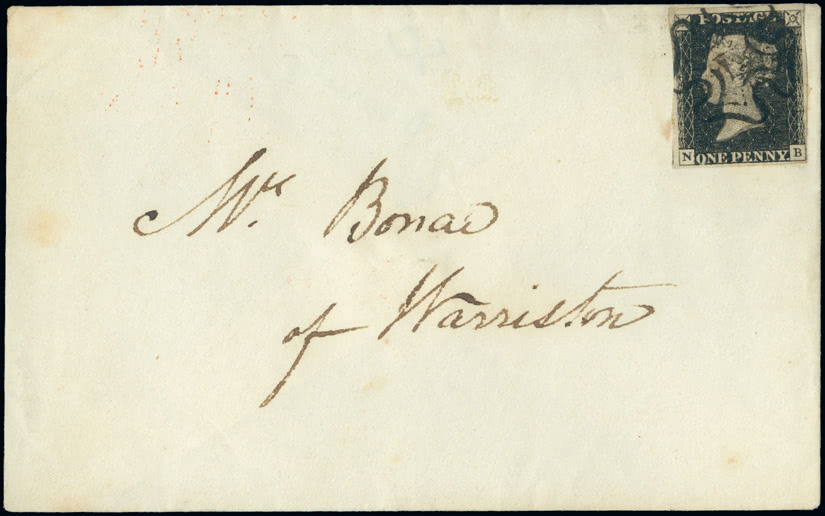 POSTAGE
N ONE PENNY B
Mr. Bonar
of Warriston